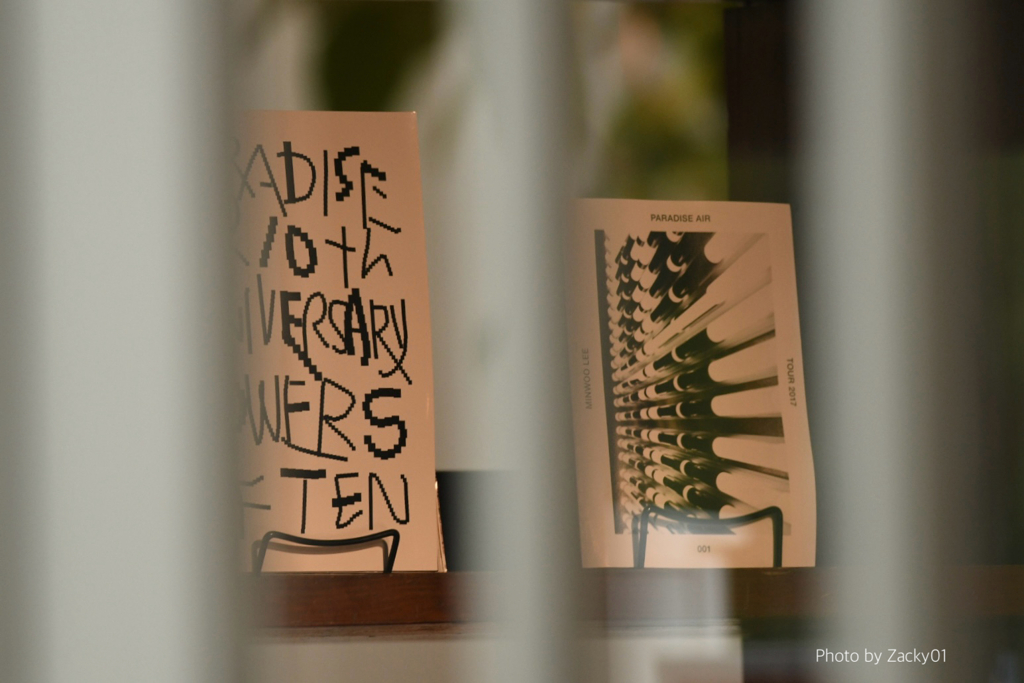 ADISE
10th
IVERSARY
WERS
TEN
PARADISE AIR
MINWOO LEE
TOUR 2017
001
Photo by Zacky01